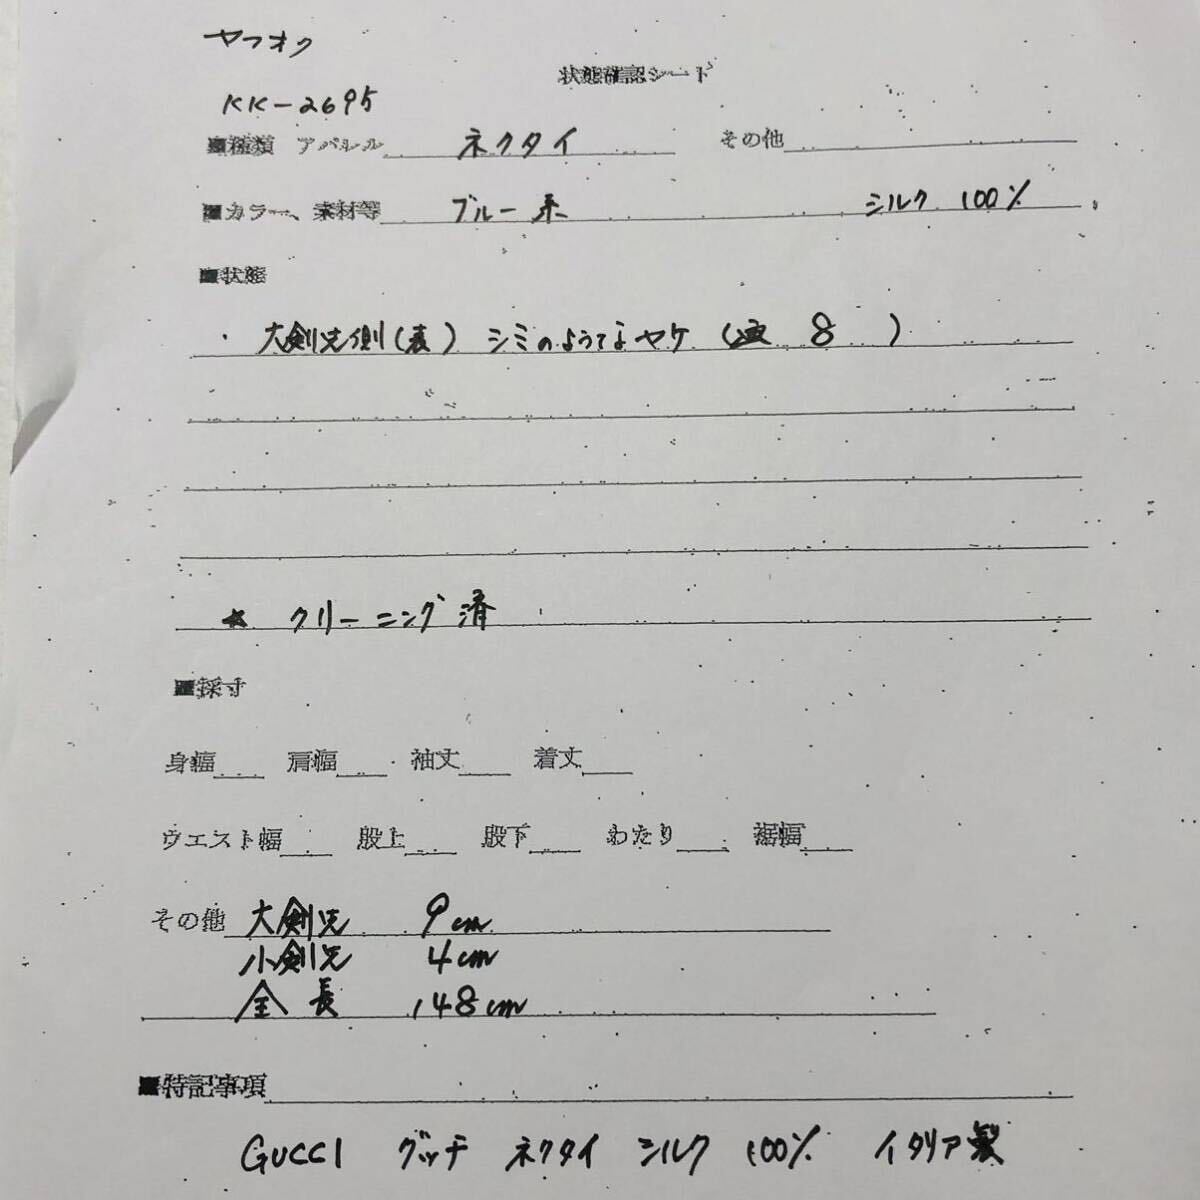 ヤフオク
状態確認シート
KK-2695
■種類 アパレル ネクタイ その他
■カラー、素材等 ブルー系 シルク 100%
■状態
・大剣先側(表) シミのようなヤケ ( 8 )
★ クリーニング済
■採寸
身幅 肩幅 袖丈 着丈
ウエスト幅 股上 股下 わたり 裾幅
その他 大剣先 9cm
小剣先 4cm
全長 148cm
■特記事項
GUCCI グッチ ネクタイ シルク 100% イタリア製